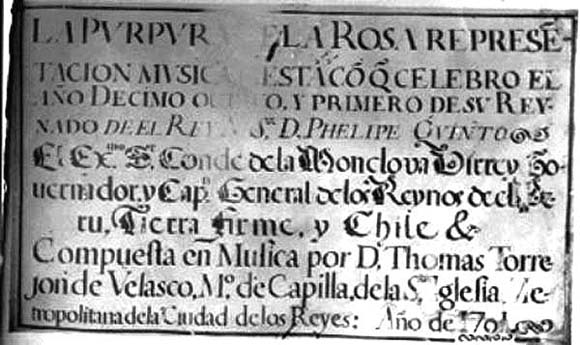 LA PVRPVRA DE LA ROSA REPRESE-
TACION MVSICA FIESTA CÕ Q̃ CELEBRO EL
AÑO DECIMO OCTAVO, Y PRIMERO DE SV REY-
NADO DE EL REY N. Sr. D. PHELIPE QVINTO
El Exmo. Sr. Conde de la Monclova Virrey, Go-
uernador, y Capn. General de los Reynos del Pe-
ru, Tierra firme, y Chile &
Compuesta en Musica por D. Thomas Torre
jon de Velasco, Mo. de Capilla, de la Sta. Yglesia Me-
tropolitana de la Ciudad de los Reyes: Año de 1701